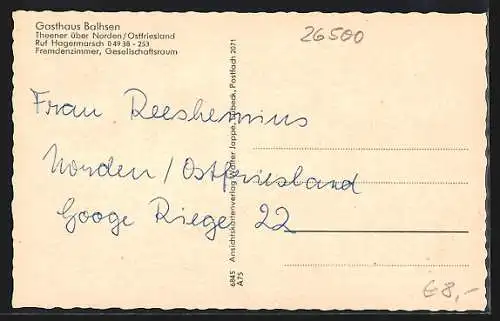 Gasthaus Balhsen
Theener über Norden/Ostfriesland
Ruf Hagermarsch 0 49 38 - 253
Fremdenzimmer, Gesellschaftsraum
26500
Frau Reeshemius
Norden / Ostfriesland
Googe Riege 22
Ansichtskartenverlag Walter Joppe, Lübeck, Postfach 2071
6845
A75
€8,-